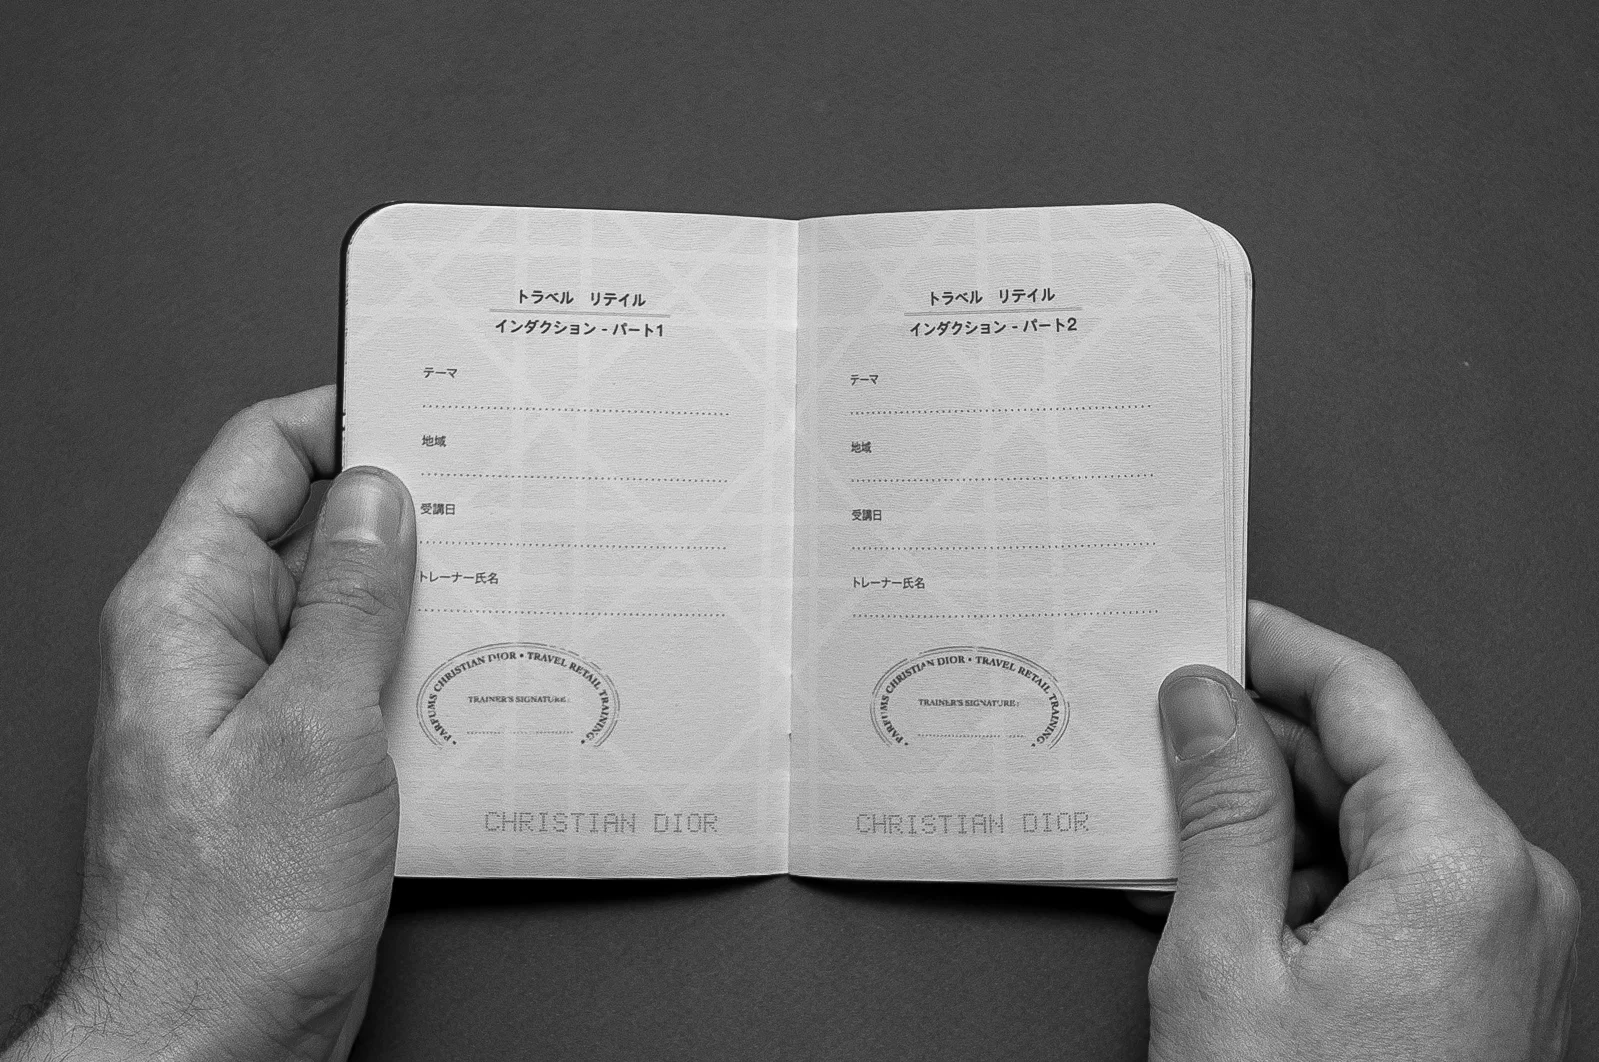 トラベル リテイル
インダクション - パート1
テーマ
地域
受講日
トレーナー氏名
• PARFUMS CHRISTIAN DIOR • TRAVEL RETAIL TRAINING •
TRAINER'S SIGNATURE:
CHRISTIAN DIOR
トラベル リテイル
インダクション - パート2
テーマ
地域
受講日
トレーナー氏名
• PARFUMS CHRISTIAN DIOR • TRAVEL RETAIL TRAINING •
TRAINER'S SIGNATURE:
CHRISTIAN DIOR